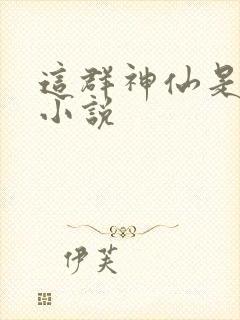 這群神仙是
小說
伊芙